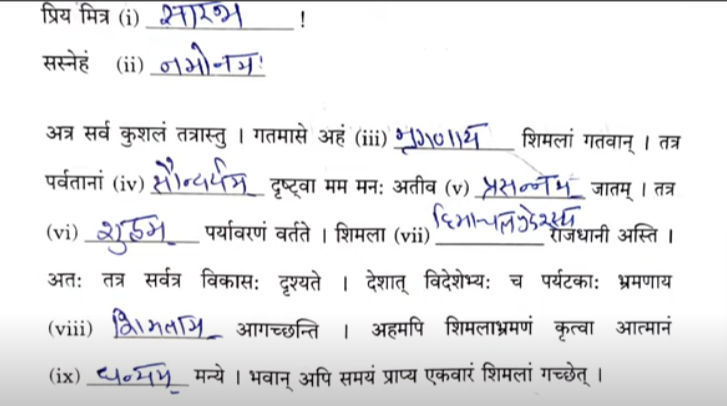 प्रिय मित्र (i) सारभ !
सस्नेहं (ii) नमोनमः
अत्र सर्वं कुशलं तत्रास्तु । गतमासे अहं (iii) भ्रमणाय शिमलां गतवान् । तत्र
पर्वतानां (iv) सौन्दर्यम् दृष्ट्वा मम मनः अतीव (v) प्रसन्नम् जातम् । तत्र
(vi) शुद्धम् पर्यावरणं वर्तते । शिमला (vii) हिमाचलप्रदेशस्य राजधानी अस्ति ।
अतः तत्र सर्वत्र विकासः दृश्यते । देशात् विदेशेभ्यः च पर्यटकाः भ्रमणाय
(viii) शिमलाम् आगच्छन्ति । अहमपि शिमलाभ्रमणं कृत्वा आत्मानं
(ix) धन्यम् मन्ये । भवान् अपि समयं प्राप्य एकवारं शिमलां गच्छेत् ।